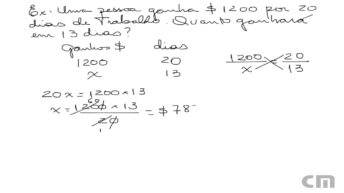 Ex: Uma pessoa ganha $ 1200 por 20
dias de Trabalho. Quanto ganhará
em 13 dias?
ganhos $ dias
1200 20
x 13
1200/x = 20/13
20x = 1200 x 13
x = 1200 x 13 / 20 = $ 78
60
1
cm